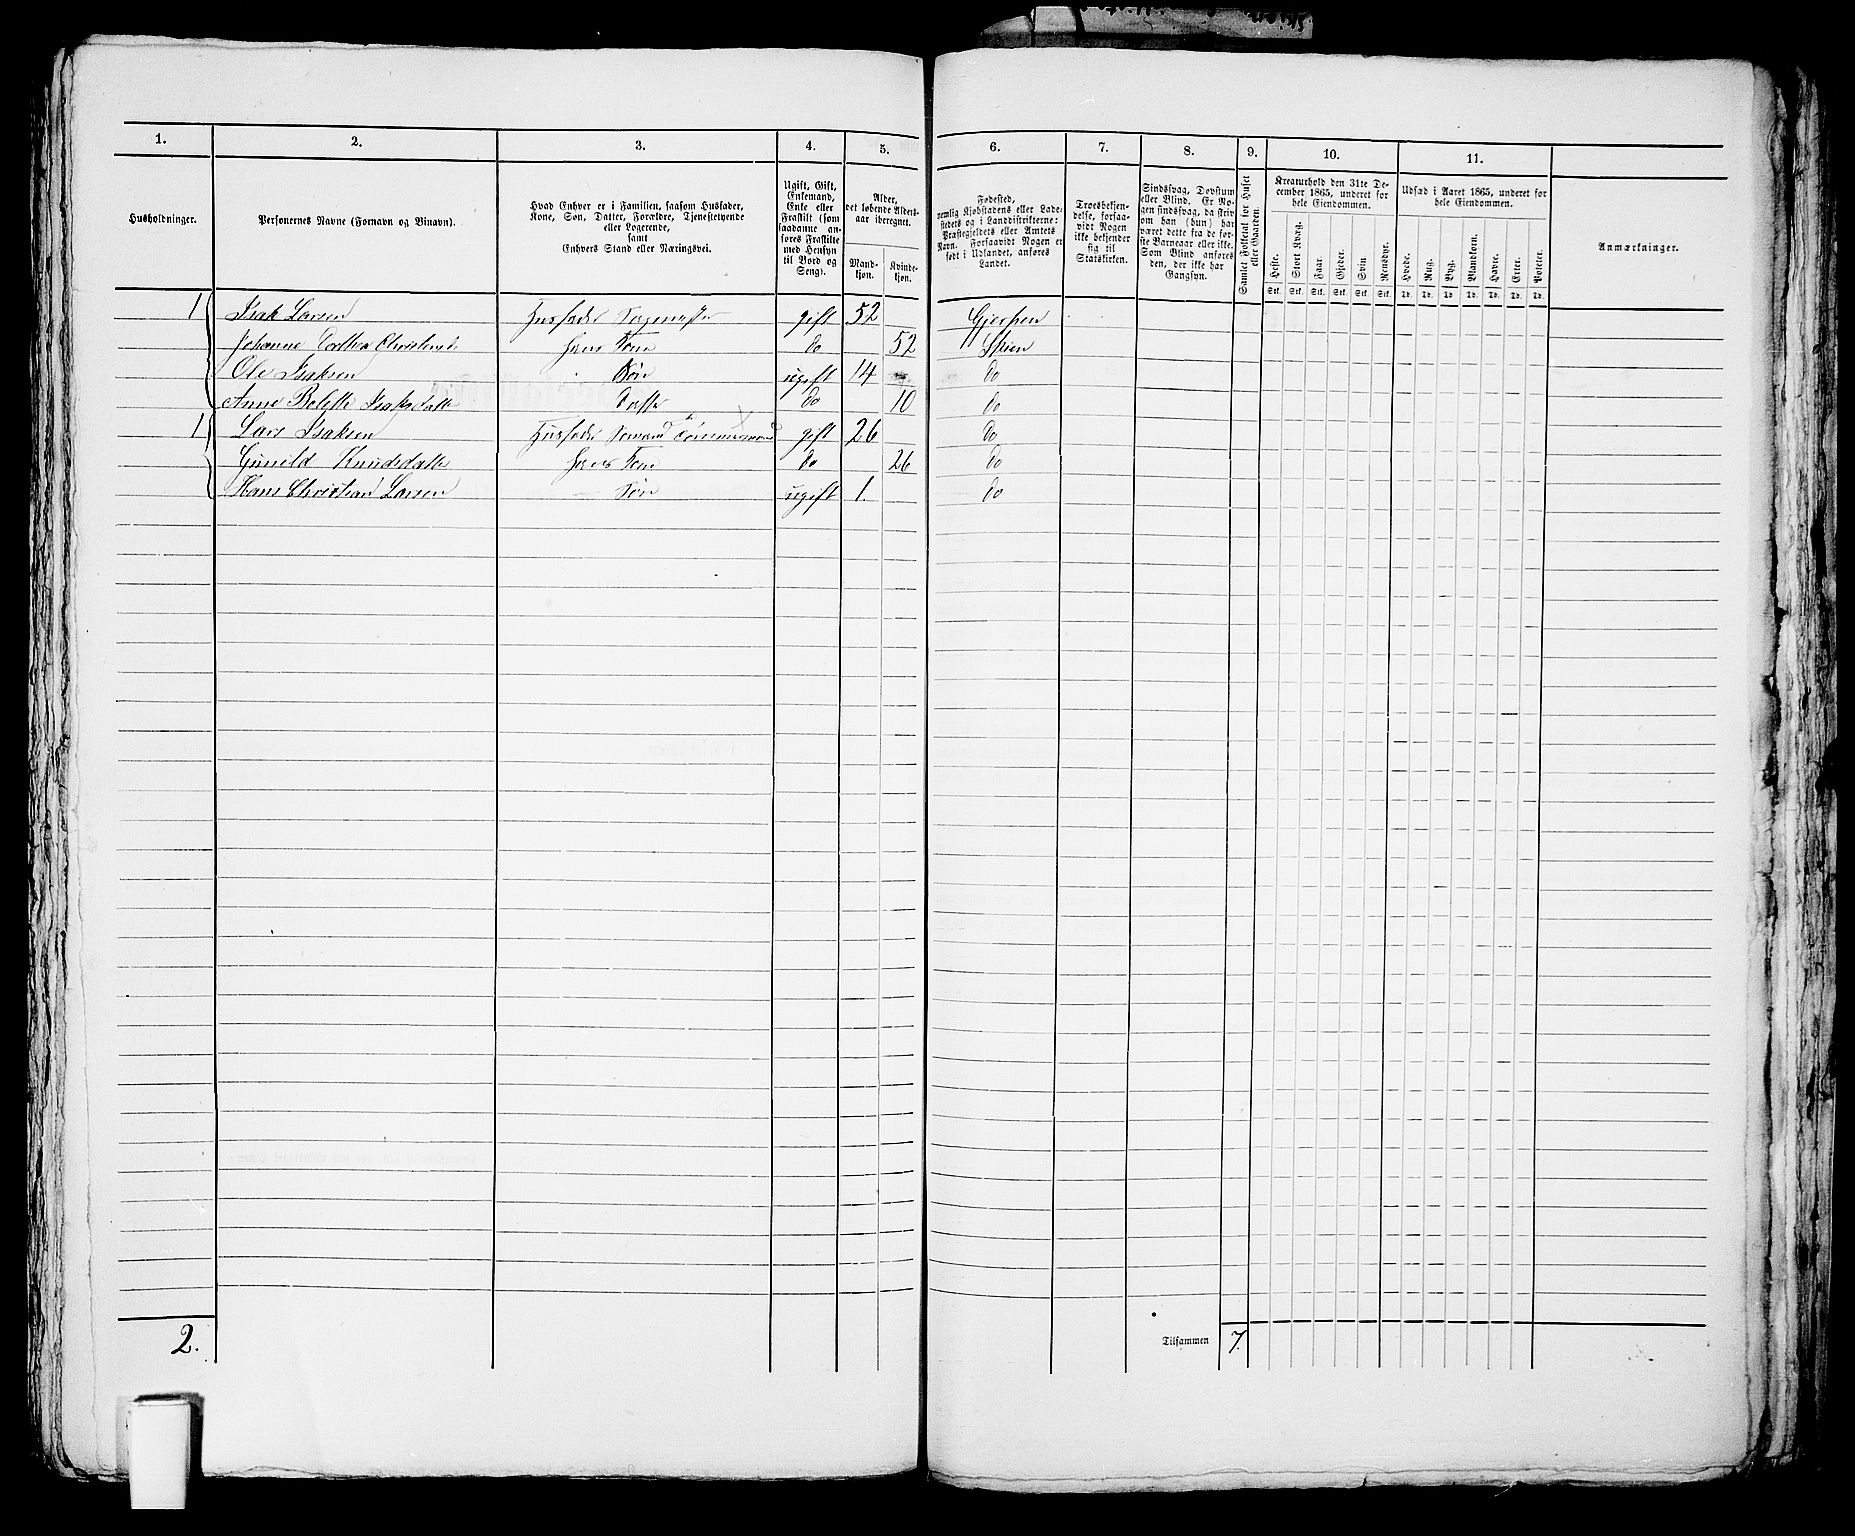 1. 2. 3. 4. 5. 6. 7. 8. 9. 10. 11.
Husholdninger.
Personernes Navne (Fornavn og Binavn).
Hvad Enhver er i Familien, saasom Husfader,
Kone, Søn, Datter, Forældre, Tjenestetyende
eller Logerende,
samt
Enhvers Stand eller Næringsvei.
Ugift, Gift,
Enkemand,
Enke eller
Fraskilt (som
saadanne an-
føres Fraskilte
med Hensyn
til Bord og
Seng).
Alder,
det løbende Alders-
aar iberegnet.
Mand-
kjøn.
Kvinde-
kjøn.
Fødested,
nemlig Kjøbstadens eller Lade-
stedets og i Landdistrikterne:
Præstegjeldets eller Amtets
Navn. Forsaavidt Nogen er
født i Udlandet, anføres
Landet.
Troesbekjen-
delse, forsaa-
vidt Nogen
ikke bekjender
sig til
Statskirken.
Sindssvag, Døvstum
eller Blind. Er No-
gen sindssvag, da skriv
om han (hun) har
været dette fra de før-
ste Barneaar eller ikke.
Som Blind anføres
den, der ikke har
Gangsyn.
Samlet Folketal for Huset
eller Gaarden.
Kreaturhold den 31te De-
cember 1865, underet for
hele Eiendommen.
Heste. Stort Kvæg. Faar. Gjeder. Svin. Rensdyr.
Stk. Stk. Stk. Stk. Stk. Stk.
Udsæd i Aaret 1865, underet for
hele Eiendommen.
Hvede. Rug. Byg. Blandkorn. Havre. Erter. Poteter.
Td. Td. Td. Td. Td. Td. Td.
Anmærkninger.
1 Isak Larsen Husfader gift 52 Gjerpen
Johanne do 52 Skien
Ole Isaksen Søn ugift 14 do
Anne Bolette Isaksdatter Datter do 10 do
1 Lars Isaksen Husfader Sømand Tømmermand gift 26 do
Gunild Knudsdatter hans Kone do 26 do
Hans Christian Larsen Søn ugift 1 do
2. Tilsammen 7.